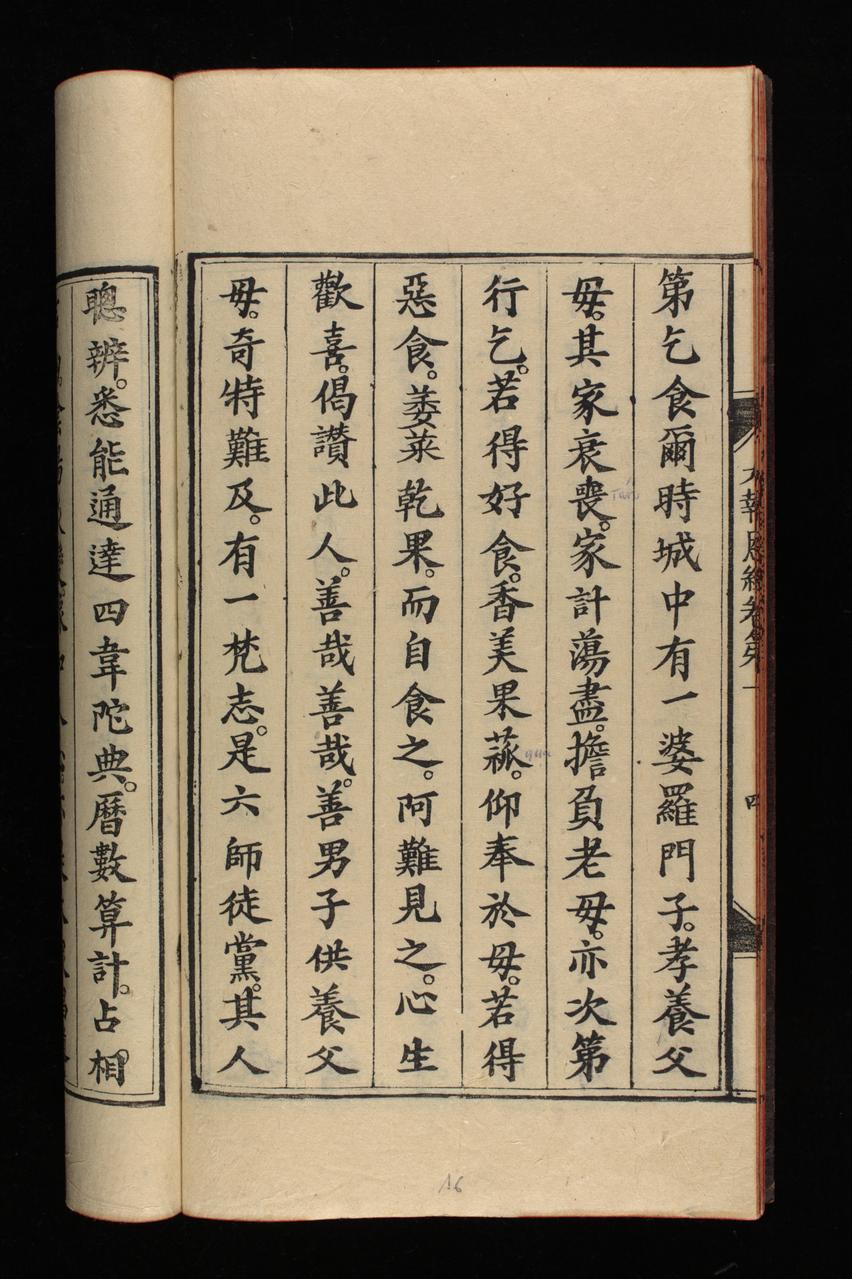 第乞食爾時城中有一婆羅門子。孝養父
母。其家衰喪。家計蕩盡。擔負老母。亦次第
行乞。若得好食。香美果蓏。仰奉於母。若得
惡食。萎菜乾果。而自食之。阿難見之。心生
歡喜。偈讃此人。善哉善哉。善男子供養父
母。奇特難及。有一梵志。是六師徒黨。其人
聰辨。悉能通達四韋陀典。曆數算計。占相。
報恩經卷第一
四
16